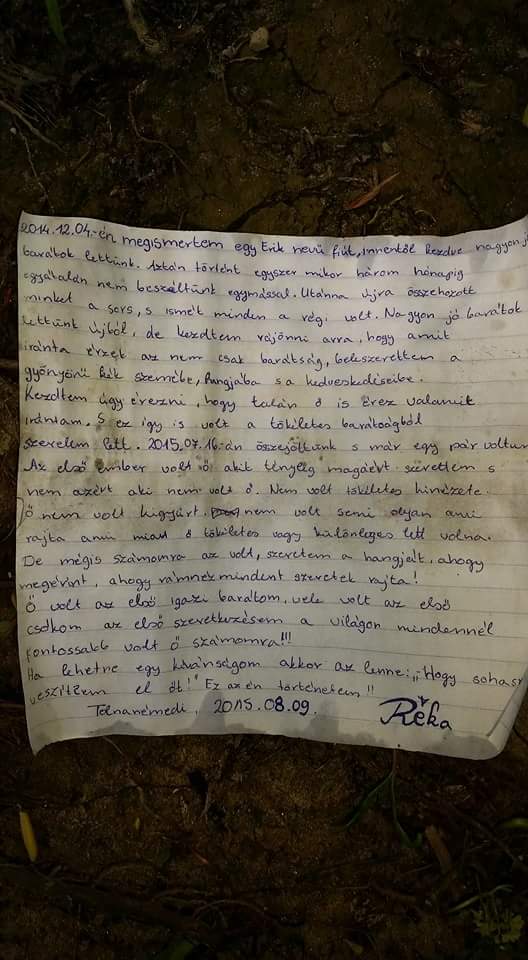 2014.12.04.-én megismertem egy Erik nevű fiút, innentől kezdve nagyon jó
barátok lettünk. Aztán történt egyszer mikor három hónapig
egyáltalán nem beszéltünk egymással. Utánna újra összehozott
minket a sors, s ismét minden a régi volt. Nagyon jó barátok
lettünk újból, de kezdtem rájönni arra, hogy amit
iránta érzek az nem csak barátság, beleszerettem a
gyönyörű kék szemébe, hangjába s a kedveskedéseibe.
Kezdtem úgy érezni, hogy talán ő is érez valamit
irántam, S ez így is volt a tökéletes barátságból
szerelem lett. 2015.07.16-án összejöttünk s már egy pár voltunk
Az első ember volt ő akit tényleg magáért szerettem s
nem azért aki nem volt ő. Nem volt tökéletes kinézete.
Ő nem volt kigyúrt. nem volt semi olyan ami
rajta ami miatt ő tökéletes vagy különleges lett volna.
De mégis számomra az volt, szeretem a hangját, ahogy
megérint, ahogy rámnéz mindent szeretek rajta!
Ő volt az első igazi barátom, vele volt az első
csókom az első szeretkezésem a világon mindennél
fontossabb volt ő számomra!!!
Ha lehetne egy kívánságom akkor az lenne: „Hogy sohase
veszítsem el őt!" Ez az én történetem!!
Tolnanémedi, 2015.08.09. Réka